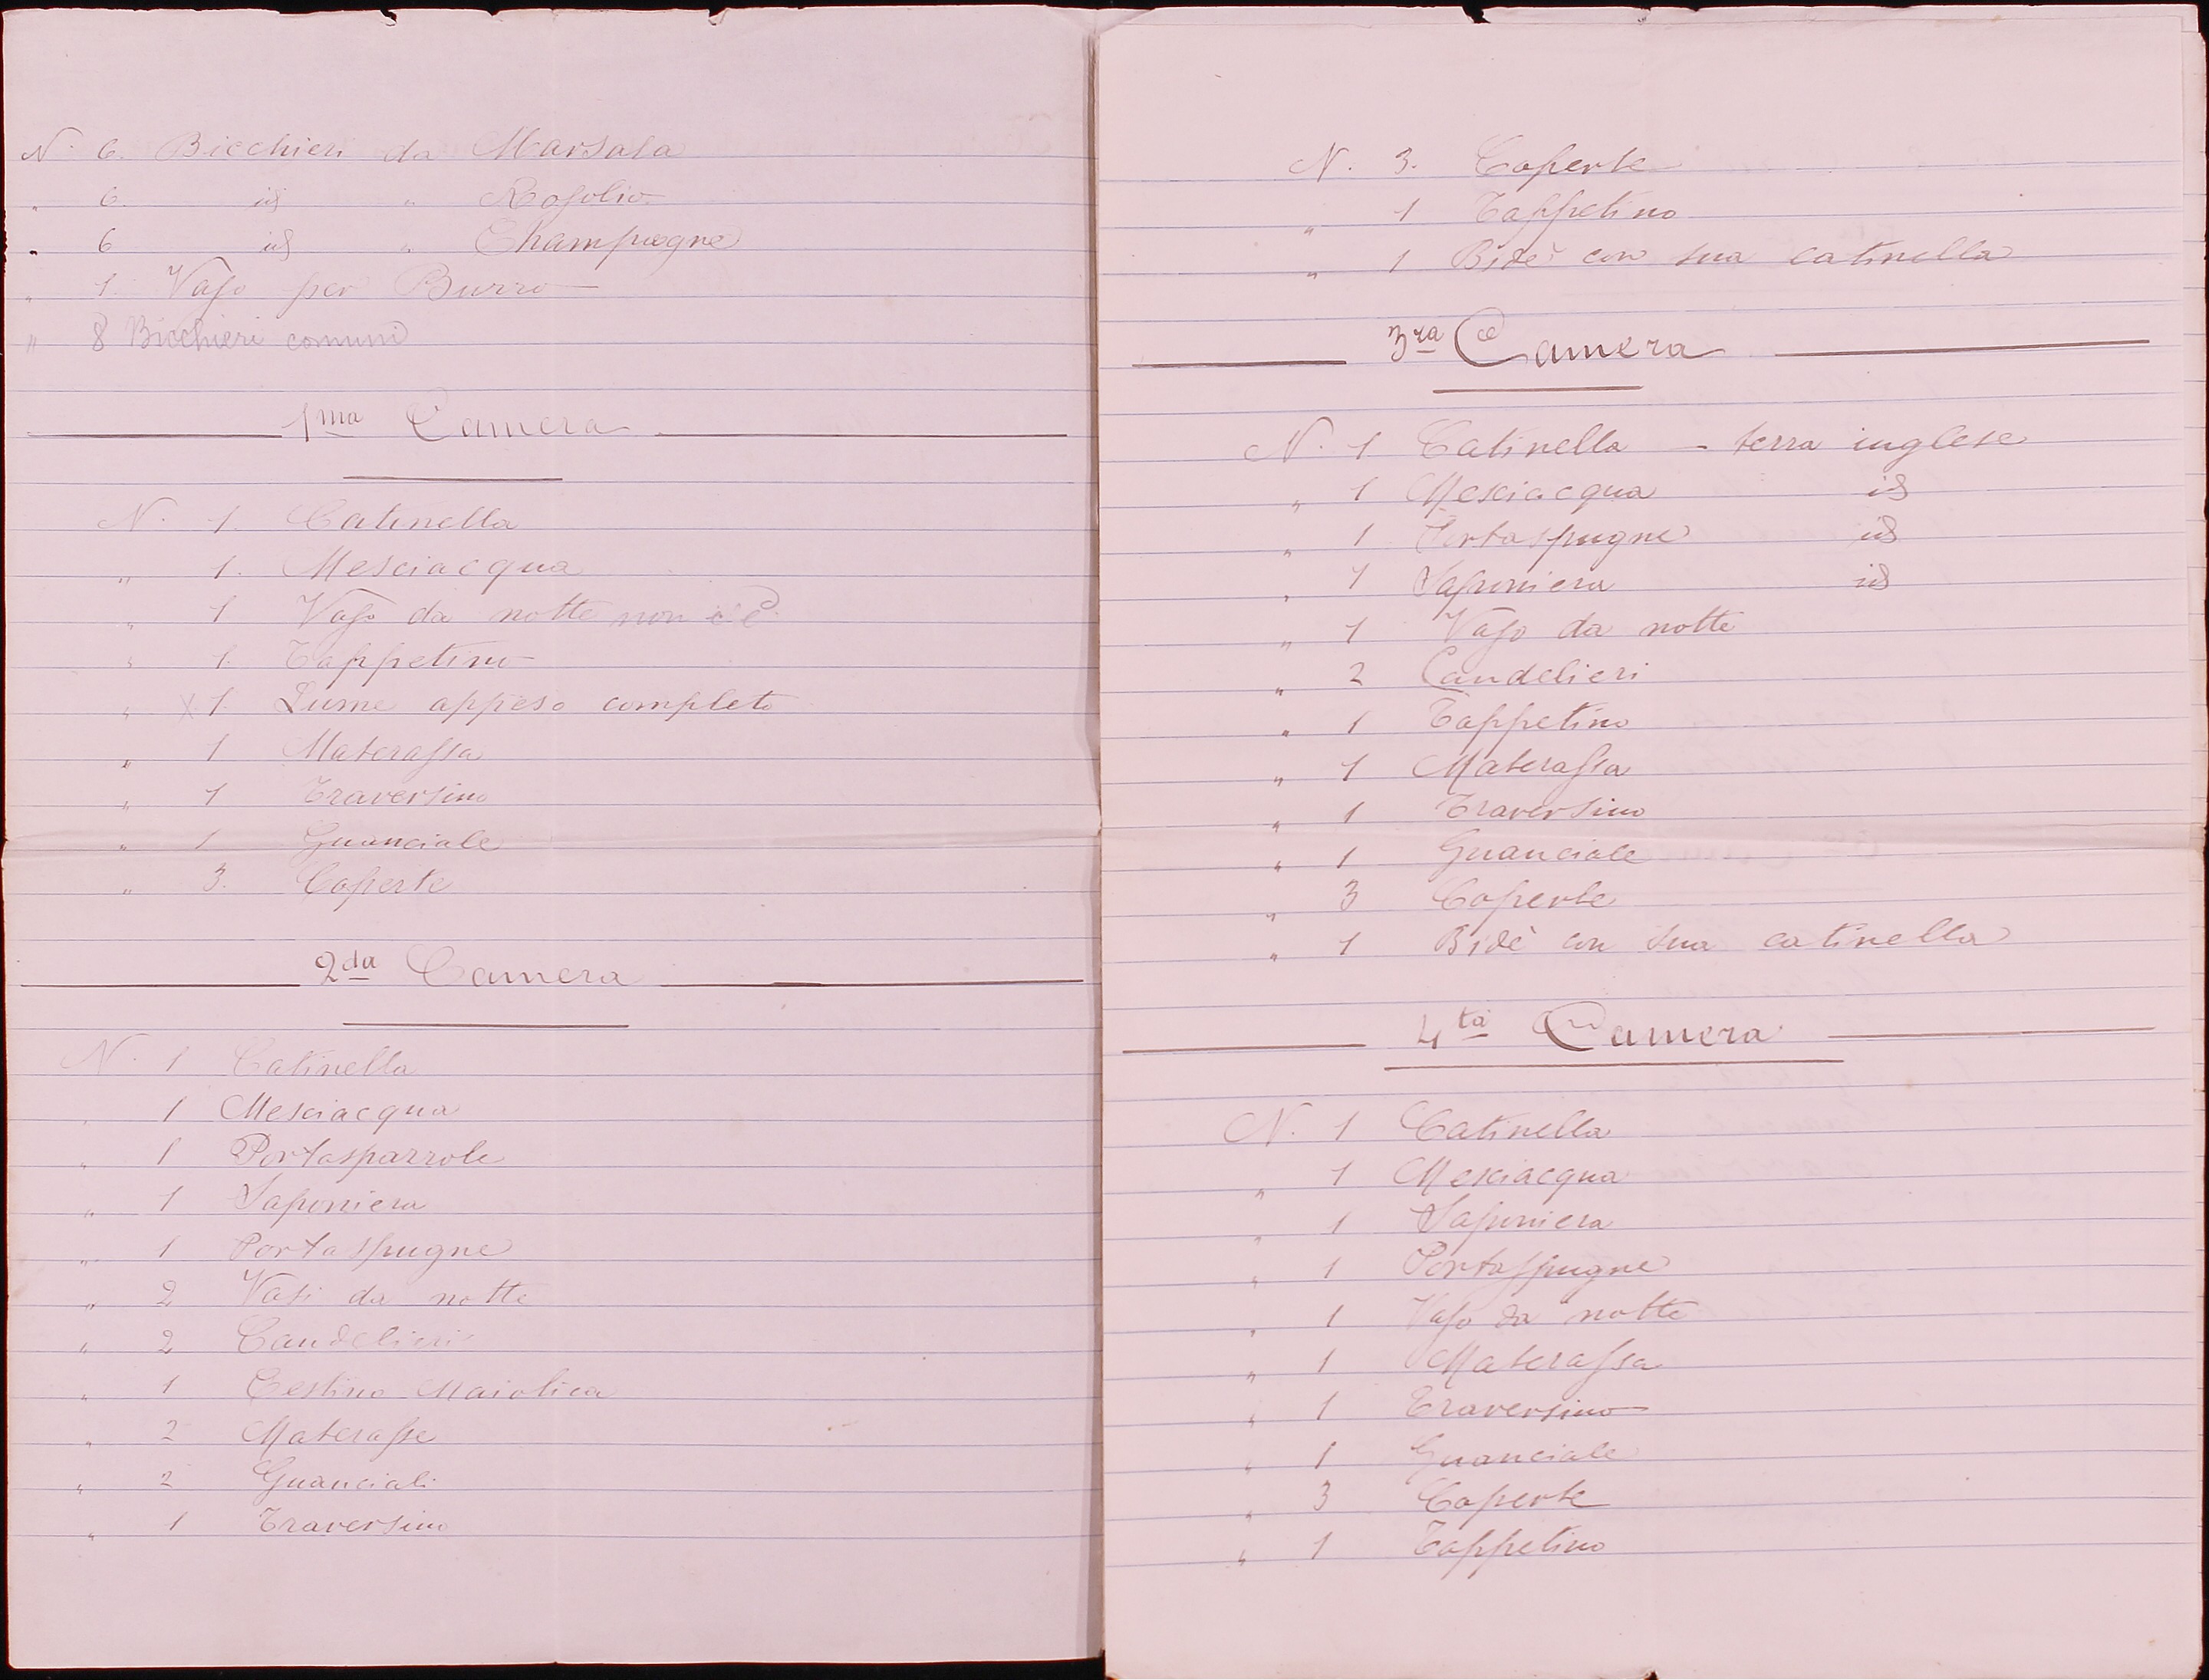 N. 6. Bicchieri da Marsala
" 6. id " Rosolio
" 6 id " Champagne
" 1. Vaso per Burro
" 8 Bicchieri comuni
1ma Camera
N. 1. Catinella
" 1. Mesciacqua
" 1 Vaso da notte non c'è
" 1. Tappetino
" X 1. Lume appeso completo
" 1 Materassa
" 1 Traversino
" 1 Guanciale
" 3. Coperte
2da Camera
N. 1 Catinella
" 1 Mesciacqua
" 1 Portaspazzole
" 1 Saponiera
" 1 Portaspugne
" 2 Vasi da notte
" 2 Candelieri
" 1 Cestino Maiolica
" 2 Materasse
" 2 Guanciali
" 1 Traversino
N. 3. Coperte
" 1 Tappetino
" 1 Bidè con sua catinella
3ra Camera
N. 1 Catinella - terra inglese
" 1 Mesciacqua id
" 1 Portaspugne id
" 1 Saponiera id
" 1 Vaso da notte
" 2 Candelieri
" 1 Tappetino
" 1 Materassa
" 1 Traversino
" 1 Guanciale
" 3 Coperte
" 1 Bidè con sua catinella
4ta Camera
N. 1 Catinella
" 1 Mesciacqua
" 1 Saponiera
" 1 Portaspugne
" 1 Vaso da notte
" 1 Materassa
" 1 Traversino
" 1 Guanciale
" 3 Coperte
" 1 Tappetino